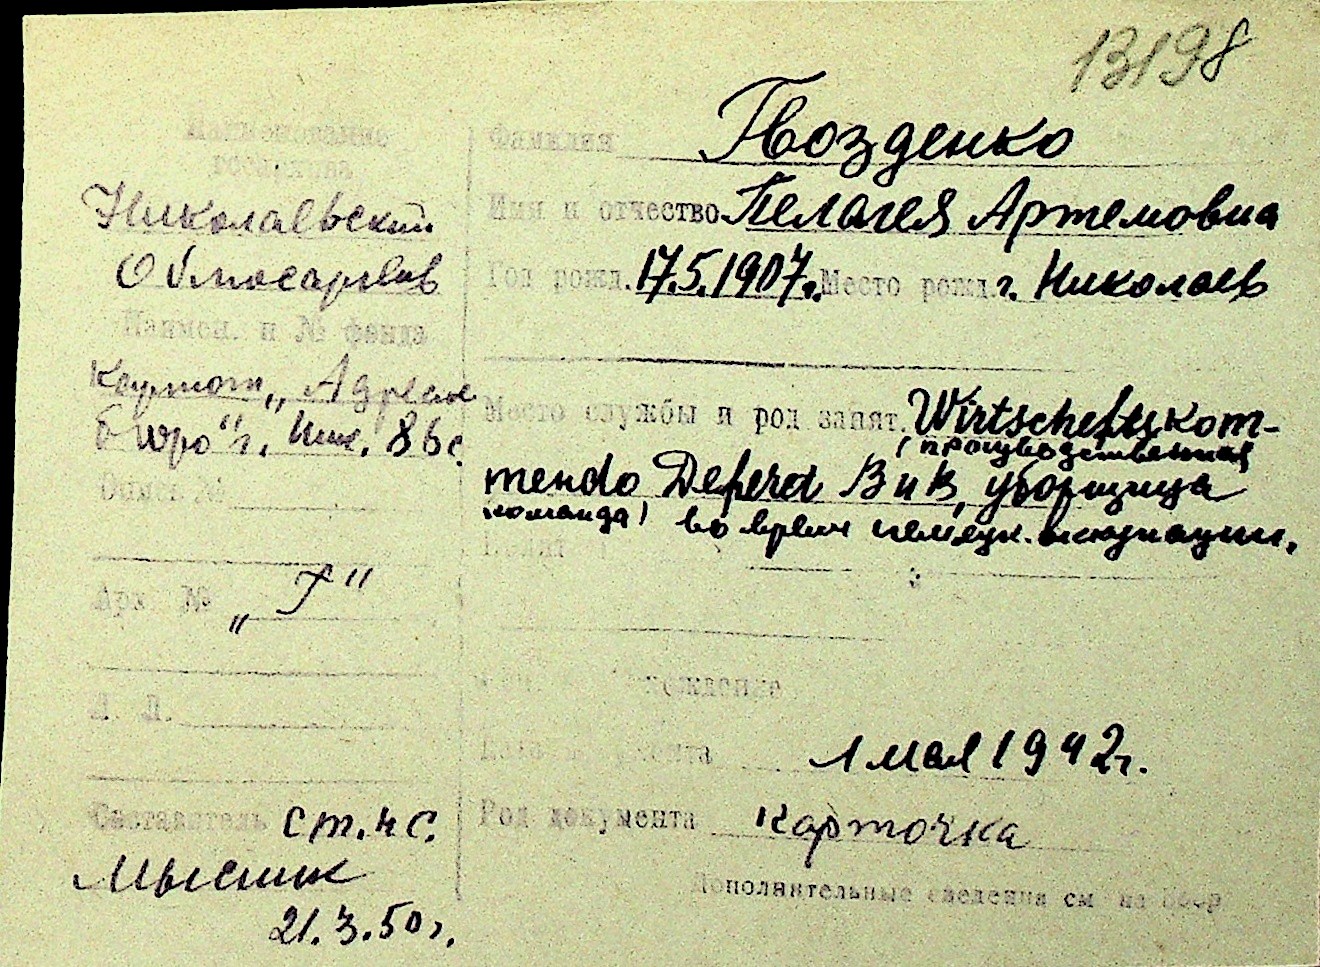 13198
Наименование
госархива
Николаевский
Облгосархив
Наимен. и № фонда
Картот. „Адресн.
бюро" г. Ник. 86с.
Опись №
Арх. № „Г"
Л. Л.
Составитель ст. н с.
Мысник
21.3.50 г.
Фамилия Гвозденко
Имя и отчество Пелагея Артемовна
Год рожд. 17.5.1907 г. Место рожд. г. Николаев
Место службы и род занят. Wirtscheftskom-
(производственная
mendo Deferd В и В, уборщица
команда) во время немецк. оккупации.
Дата документа 1 мая 1942 г.
Род документа карточка
Дополнительные сведения см на обор